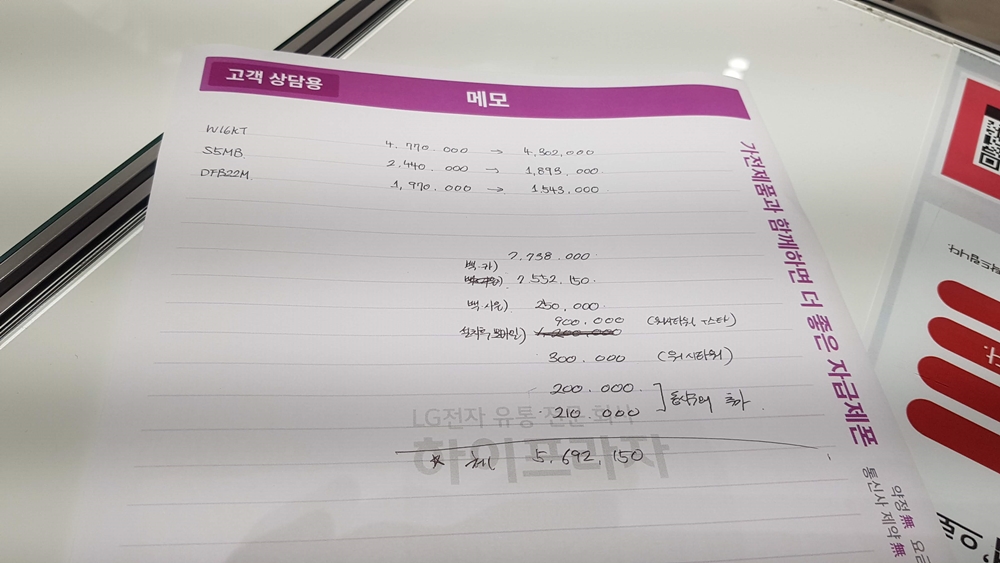 고객 상담용
메모
W16KT 4.770.000 → 4,302,000
S5MB 2.440.000 → 1,893,000
DFB22M 1,970.000 → 1,543,000
7.738.000
백.카)
7.552.150
백.사은) 250,000
900.000 (워시타워, +스타)
300.000 (워시타워)
200.000
210.000 동시구매 추가
LG전자 유통 전문 회사
하이프라자
5,692,150
가전제품과 함께하면 더 좋은 자급제폰
약정 無 요금
통신사 제약 無